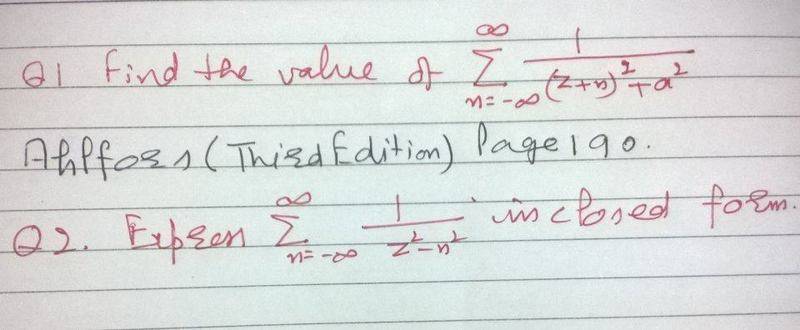 Q1 Find the value of ∑_{n=-∞}^{∞} 1/((z+n)²+a²)
Ahlfors (Third Edition) Page 190.
Q2. Express ∑_{n=-∞}^{∞} 1/(z²-n²) in closed form.